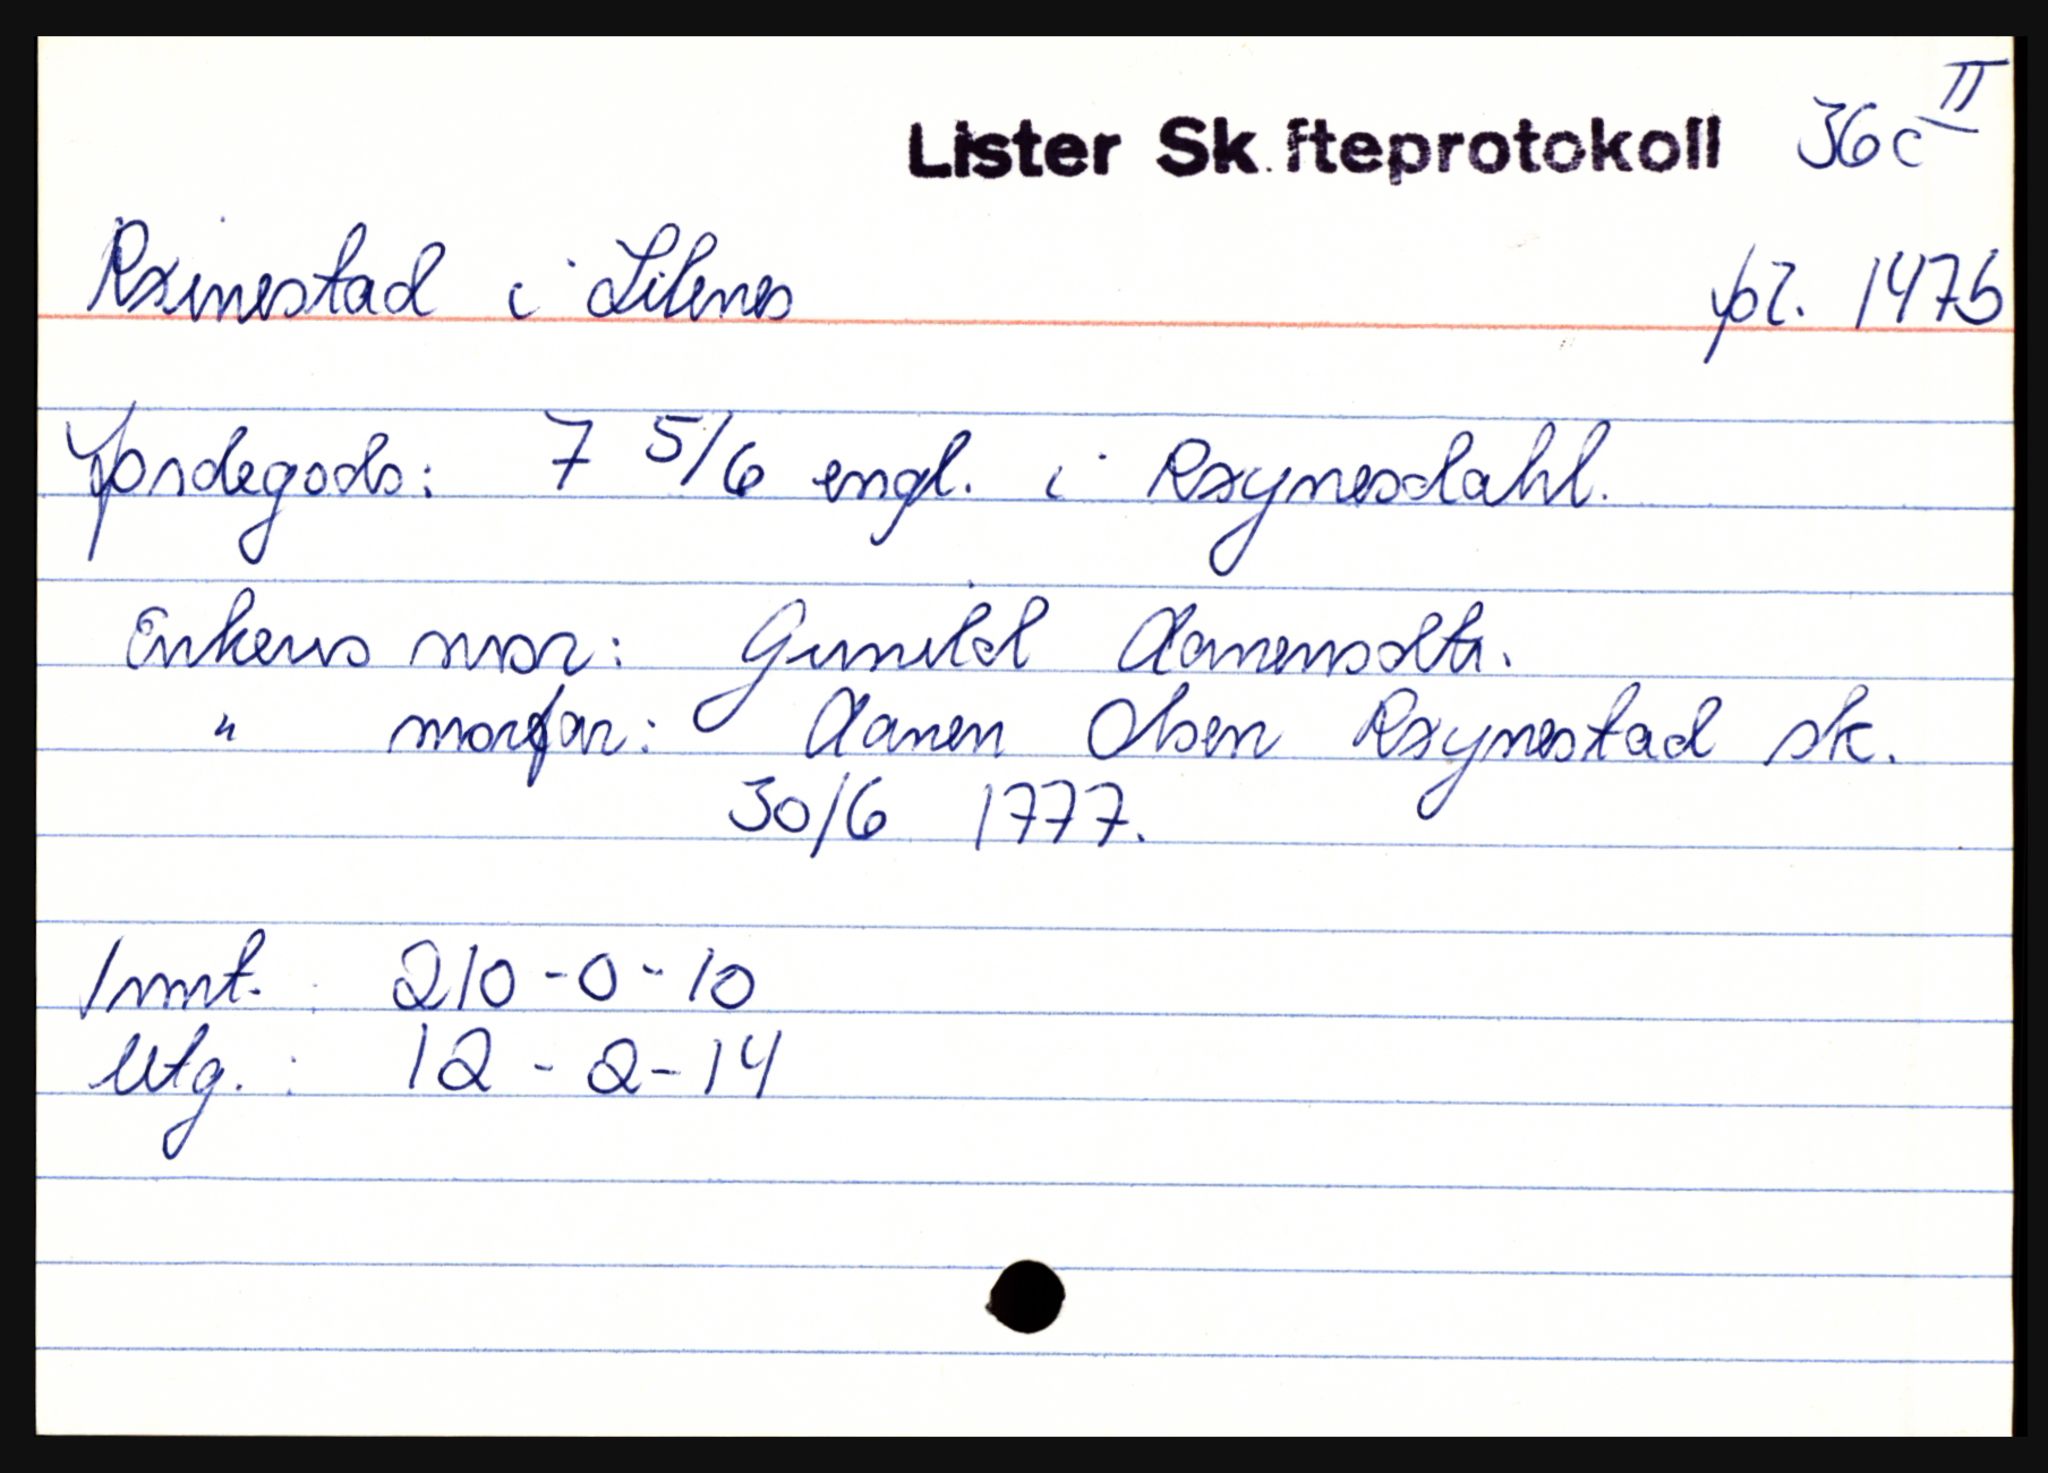 Lister Sk.fteprotokoll 36c II
Røinestad i Lilenes pr. 1476
Jordegods: 7 5/6 engl. i Røynesdahl.
Enkens mor: Gunild Aanensdtr.
" morfar: Aanen Olsen Røynestad sk.
30/6 1777.
Innt. : 210-0-10
Utg. : 12-2-14